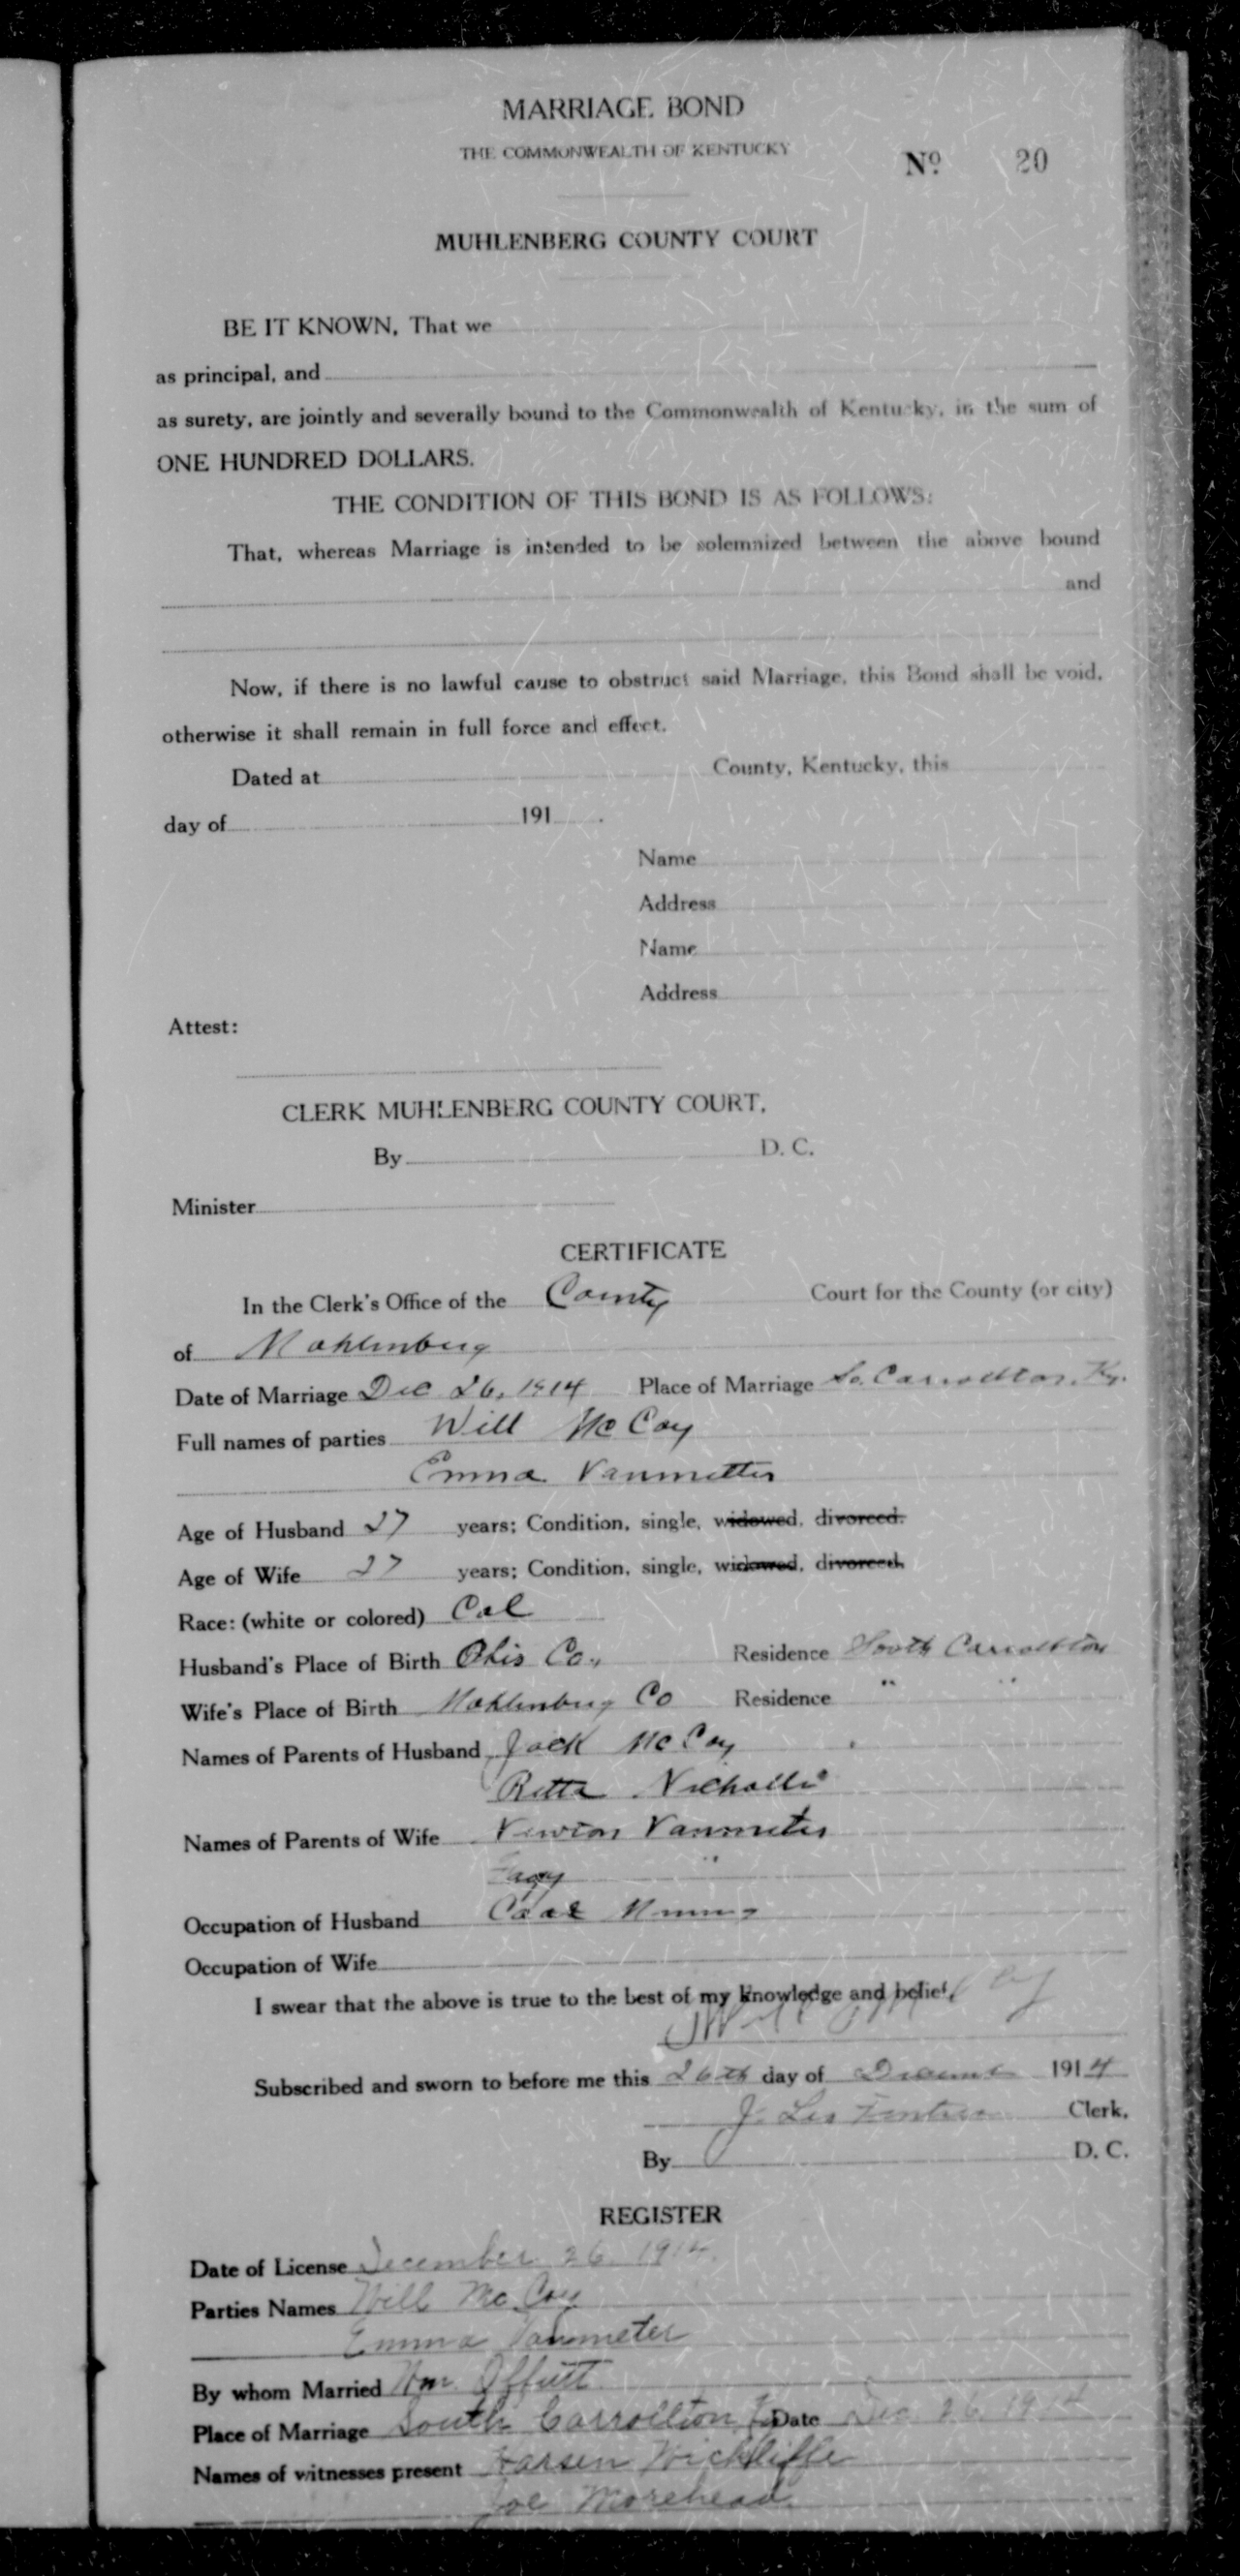 MARRIAGE BOND
THE COMMONWEALTH OF KENTUCKY
No. 20
MUHLENBERG COUNTY COURT
BE IT KNOWN, That we
as principal, and
as surety, are jointly and severally bound to the Commonwealth of Kentucky, in the sum of
ONE HUNDRED DOLLARS.
THE CONDITION OF THIS BOND IS AS FOLLOWS:
That, whereas Marriage is intended to be solemnized between the above bound
and
Now, if there is no lawful cause to obstruct said Marriage, this Bond shall be void,
otherwise it shall remain in full force and effect.
Dated at County, Kentucky, this
day of 191 .
Name
Address
Name
Address
Attest:
CLERK MUHLENBERG COUNTY COURT,
By D. C.
Minister
CERTIFICATE
In the Clerk's Office of the County Court for the County (or city)
of Mohlenberg
Date of Marriage Dec 26, 1914 Place of Marriage So. Carrollton, Ky.
Full names of parties Will McCoy
Emma Vanmetter
Age of Husband 27 years; Condition, single, widowed, divorced.
Age of Wife 27 years; Condition, single, widowed, divorced.
Race: (white or colored) Col
Husband's Place of Birth Ohio Co., Residence South Carrollton
Wife's Place of Birth Mohlenberg Co Residence " "
Names of Parents of Husband Jack McCoy
Nicholls
Names of Parents of Wife Newton Vanmeter
"
Occupation of Husband Coal
Occupation of Wife
I swear that the above is true to the best of my knowledge and belief.
Will McCoy
Subscribed and sworn to before me this 26th day of December 1914
J. Les Clerk.
By D. C.
REGISTER
Date of License December 26, 1914
Parties Names Will McCoy
Emma Vanmeter
By whom Married Wm. Offutt
Place of Marriage South Carrollton Date Dec 26, 1914
Names of witnesses present Wickliffe
Joe Morehead